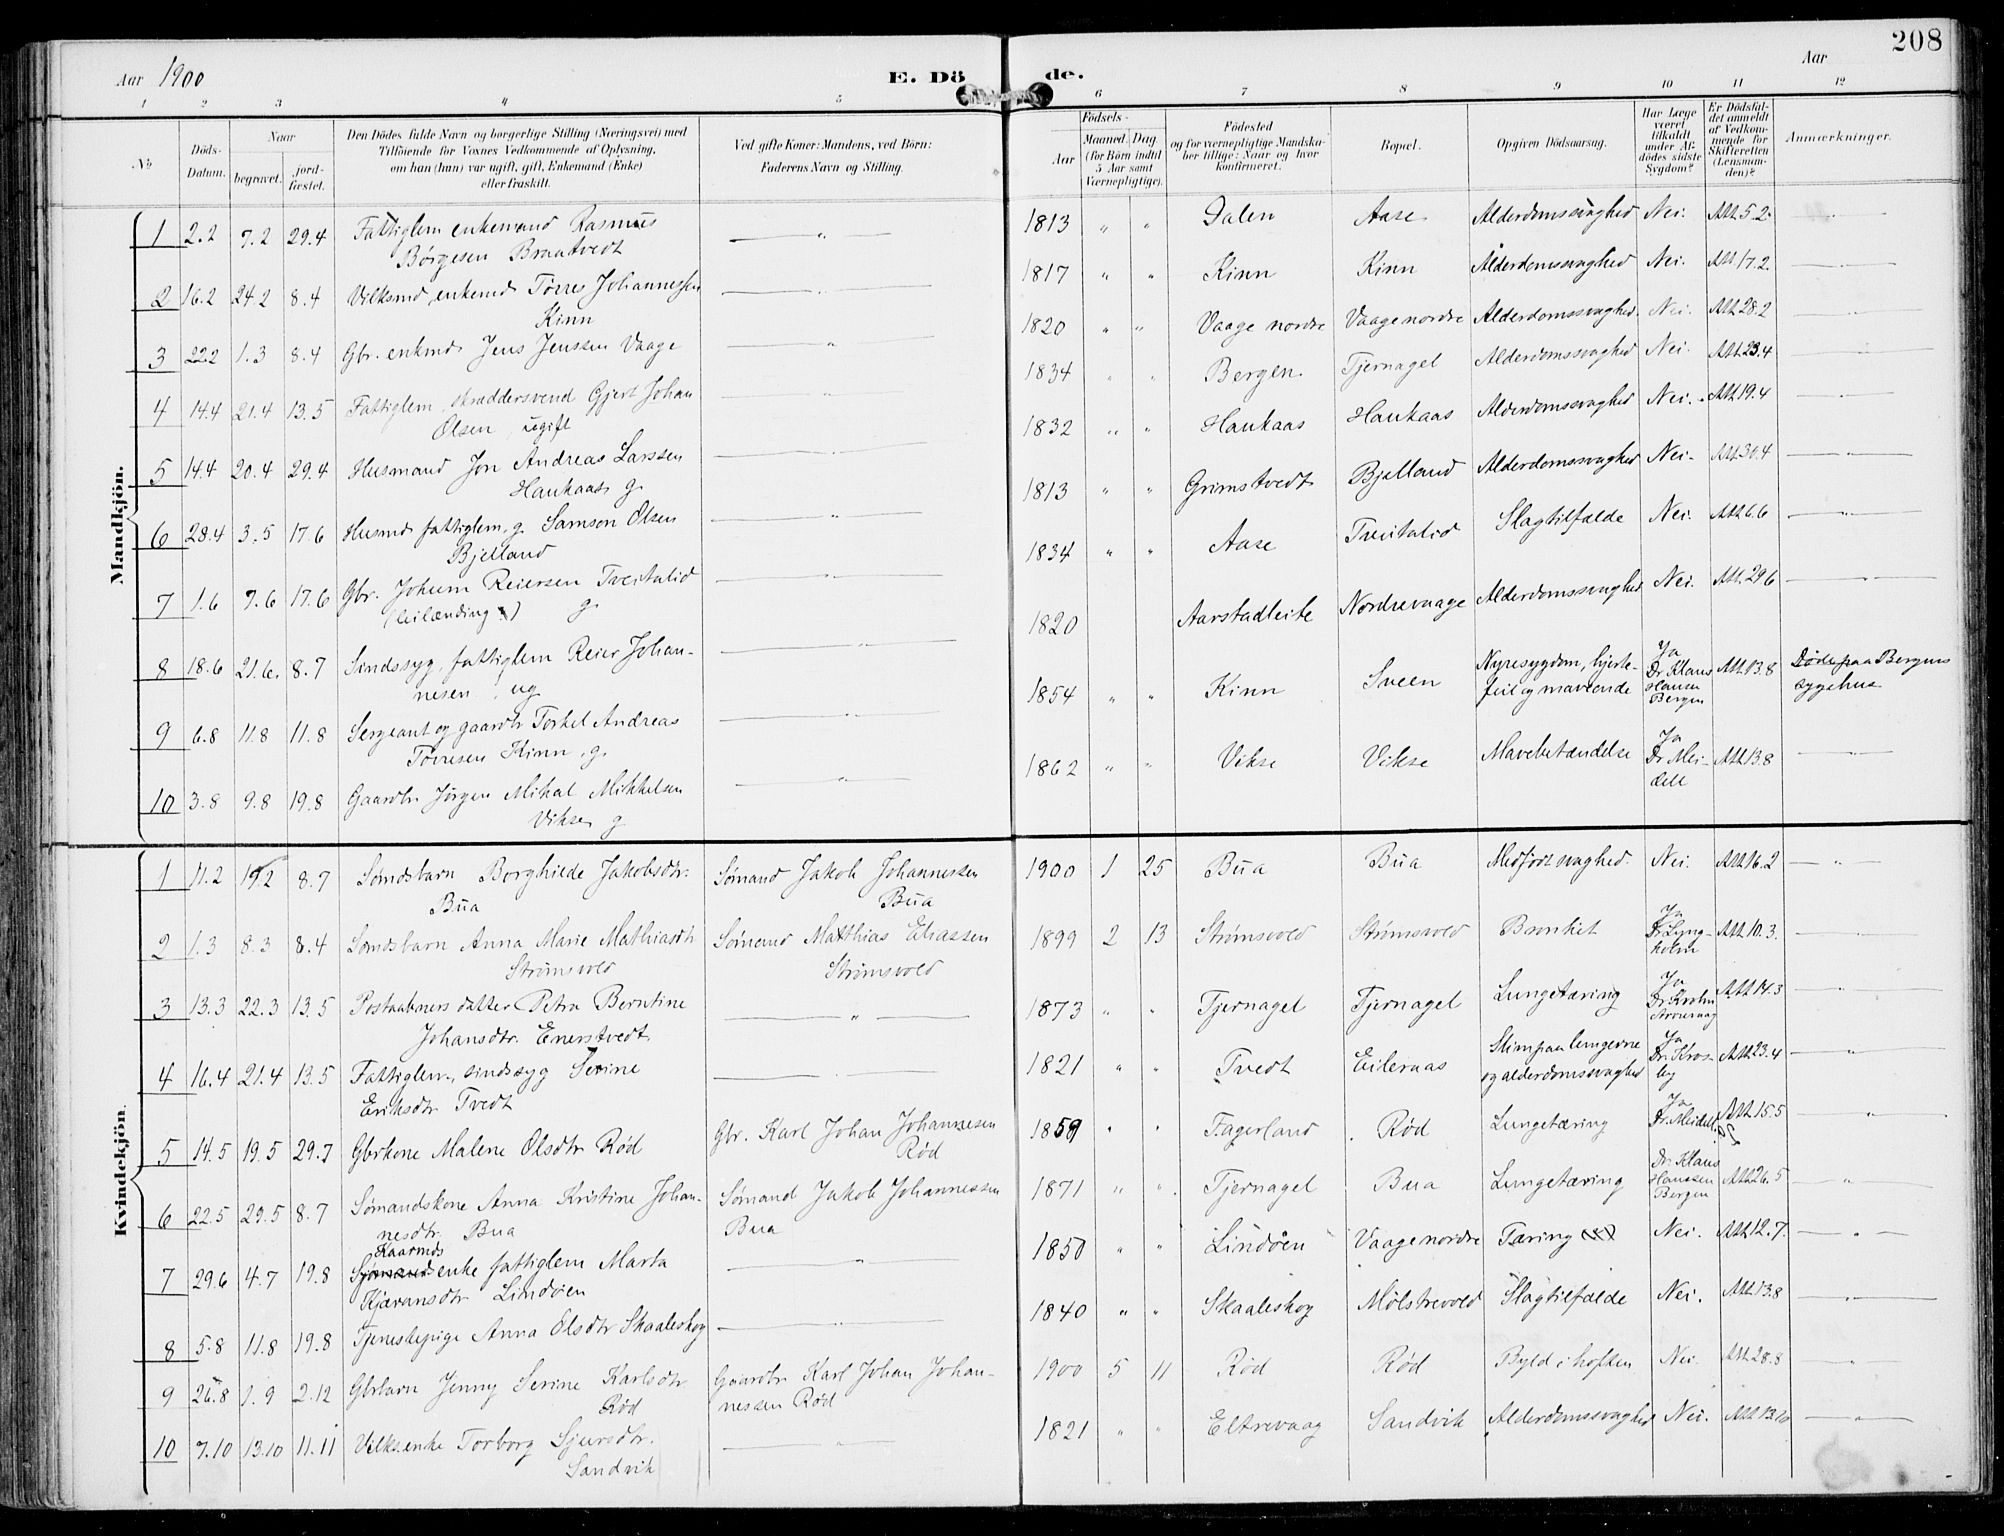 208
Aar 1900
E. Dö
de.
Aar
1 2 3 4 5 6 7 8 9 10 11 12
No
Döds-Datum.
Naar
begravet.
jord-fæstet.
Den Dödes fulde Navn og borgerlige Stilling (Næringsvei) med
Tilföiende for Voxnes Vedkommende af Oplysning,
om han (hun) var ugift, gift, Enkemand (Enke)
eller fraskilt.
Ved gifte Koner: Mandens, ved Börn:
Faderens Navn og Stilling.
Födsels-
Aar
Maaned. Dag.
(for Börn indtil
5 Aar samt
Værnepligtige).
Födested
og for værnepligtige Mandska-
ber tillige: Naar og hvor
konfirmeret.
Bopæl.
Opgiven Dödsaarsag.
Har Læge
været
tilkaldt
under Af-
dödes sidste
Sygdom?
Er Dödsfal-
det anmeldt
af Vedkom-
mende for
Skifteretten
(Lensman-
den)?
Anmærkninger.
Mandkjön.
1 2.2 7.2 29.4 Fattiglem enkemand Rasmus — " — 1813 " " Dalen Aase Alderdomssvaghed Nei. Att. 5.2. — " —
Børgesen Braatvedt
2 16.2 24.2 8.4 Vilksmd, enkemd. Tørres Johannessen — " — 1817 " " Kinn Kinn Alderdomssvaghed Nei. Att. 17.2. — " —
Kinn
3 22.2 1.3 8.4 Gbr. enkmd. Jens Jenssen Vaage — " — 1820 " " Vaage nordre Vaage nordre Alderdomssvaghed Nei. Att. 28.2 — " —
4 14.4 21.4 13.5 Fattiglem, skræddersvend Gjert Johan — " — 1834 " " Bergen. Tjernagel Alderdomssvaghed Nei. Att. 23.4 — " —
Olsen, ugift
5 14.4 20.4 29.4 Husmand Jon Andreas Larssen — " — 1832 " " Haukaas Haukaas Alderdomssvaghed Nei. Att. 19.4 — " —
Haukaas, g.
6 28.4 3.5 17.6 Husmd. fattiglem, g. Samson Olsen — " — 1813 " " Grimstvedt Bjelland Alderdomssvaghed Nei. Att. 30.4 — " —
Bjelland
7 1.6 7.6 17.6 Gbr. Johum Reiersen Tveitalid — " — 1834 " " Aase Tveitalid Slagtilfælde Nei. Att. 6.6 — " —
(leilænding) g.
8 18.6 21.6. 8.7 Sindssyg, fattiglem Reier Johan- — " — 1820 Aarstadleite Nordrevaage Alderdomssvaghed Nei. Att. 29.6 — " —
nesen, ug
9 6.8 11.8 11.8 Sergeant og gaardbr. Torkel Andreas — " — 1854 " " Kinn Sveen Nyresygdom, hjerte- Ja Att. 13.8 Døde paa Bergens
Tørresen Kinn, g. feil og maveonde Dr. Klaus Hansen Bergen sygehus
10 3.8 9.8 19.8 Gaardbr. Jørgen Mihal Mikkelsen — " — 1862 " " Vikse Vikse Mavebetændelse Ja Dr. Mei-dell Att. 13.8 — " —
Vikse, g
Kvindekjön.
1 11.2 8.7 Sømdsbarn Borghilde Jakobsdtr. Sømand Jakob Johannessen 1900 1 25 Bua Bua Medfødt svaghed. Nei. Att. 16.2 — " —
Bua Bua
2 1.3 8.3 8.4 Sømdsbarn Anna Marie Mathiasdtr. Sømand Matthias Eliassen 1899 2 13 Strømsvold Strømsvold Bronkit Ja Dr. Lyng-holm Att. 10.3. — " —
Strømsvold Strømsvold
3 13.3 22.3 13.5 Postaabners datter Petra Berntine — " — 1873 " " Tjernagel Tjernagel Lungetæring Ja Dr. Krohn Att. 14.3 — " —
Johansdtr. Enerstvedt
4 16.4 21.4 13.5 Fattiglem, sindssyg Serine — " — 1821 " " Tvedt Eileraas Slim paa lungerne Ja Dr. Kros-by Att. 23.4 — " —
Eriksdtr Tvedt og alderdomssvaghed
5 14.5 19.5 29.7 Gbrkone Malene Olsdtr Rød Gbr. Karl Johan Johannesen 1859 " " Fagerland Rød Lungetæring Ja Dr. Meidell Att. 15.5 — " —
Rød
6 22.5 29.5 8.7 Sømandskone Anna Kristine Johan- Sømand Jakob Johannessen 1871 " " Tjernagel Bua Lungetæring Dr. Klaus Hanssen Bergen Att. 26.5 — " —
nesdtr. Bua Bua
Kaarmds
7 29.6 4.7 19.8 Sømandsenke fattiglem Marta — " — 1850 " " Lindøen Vaage nordre Tæring Nei. Att. 12.7. — " —
Kjæransdtr Lindøen
8 5.8 11.8 19.8 Tjenestepige Anna Olsdtr Skaaleskog — " — 1840 " " Skaaleskog Mølstrevold Slagtilfælde Nei. Att. 13.8 — " —
9 26.8 1.9 2.12 Gbrbarn Jenny Serine Karlsdtr Gaardbr. Karl Johan Johan- 1900 5 11 Rød Rød Byld i hoften Nei. Att. 28.8 — " —
Rød nessen Rød
10 7.10 13.10 11.11 Vilks.enke Torborg Sjursdtr. — " — 1821 " " Eltrevaag Sandvik Alderdomssvaghed Nei. Att. 13.10 — " —
Sandvik